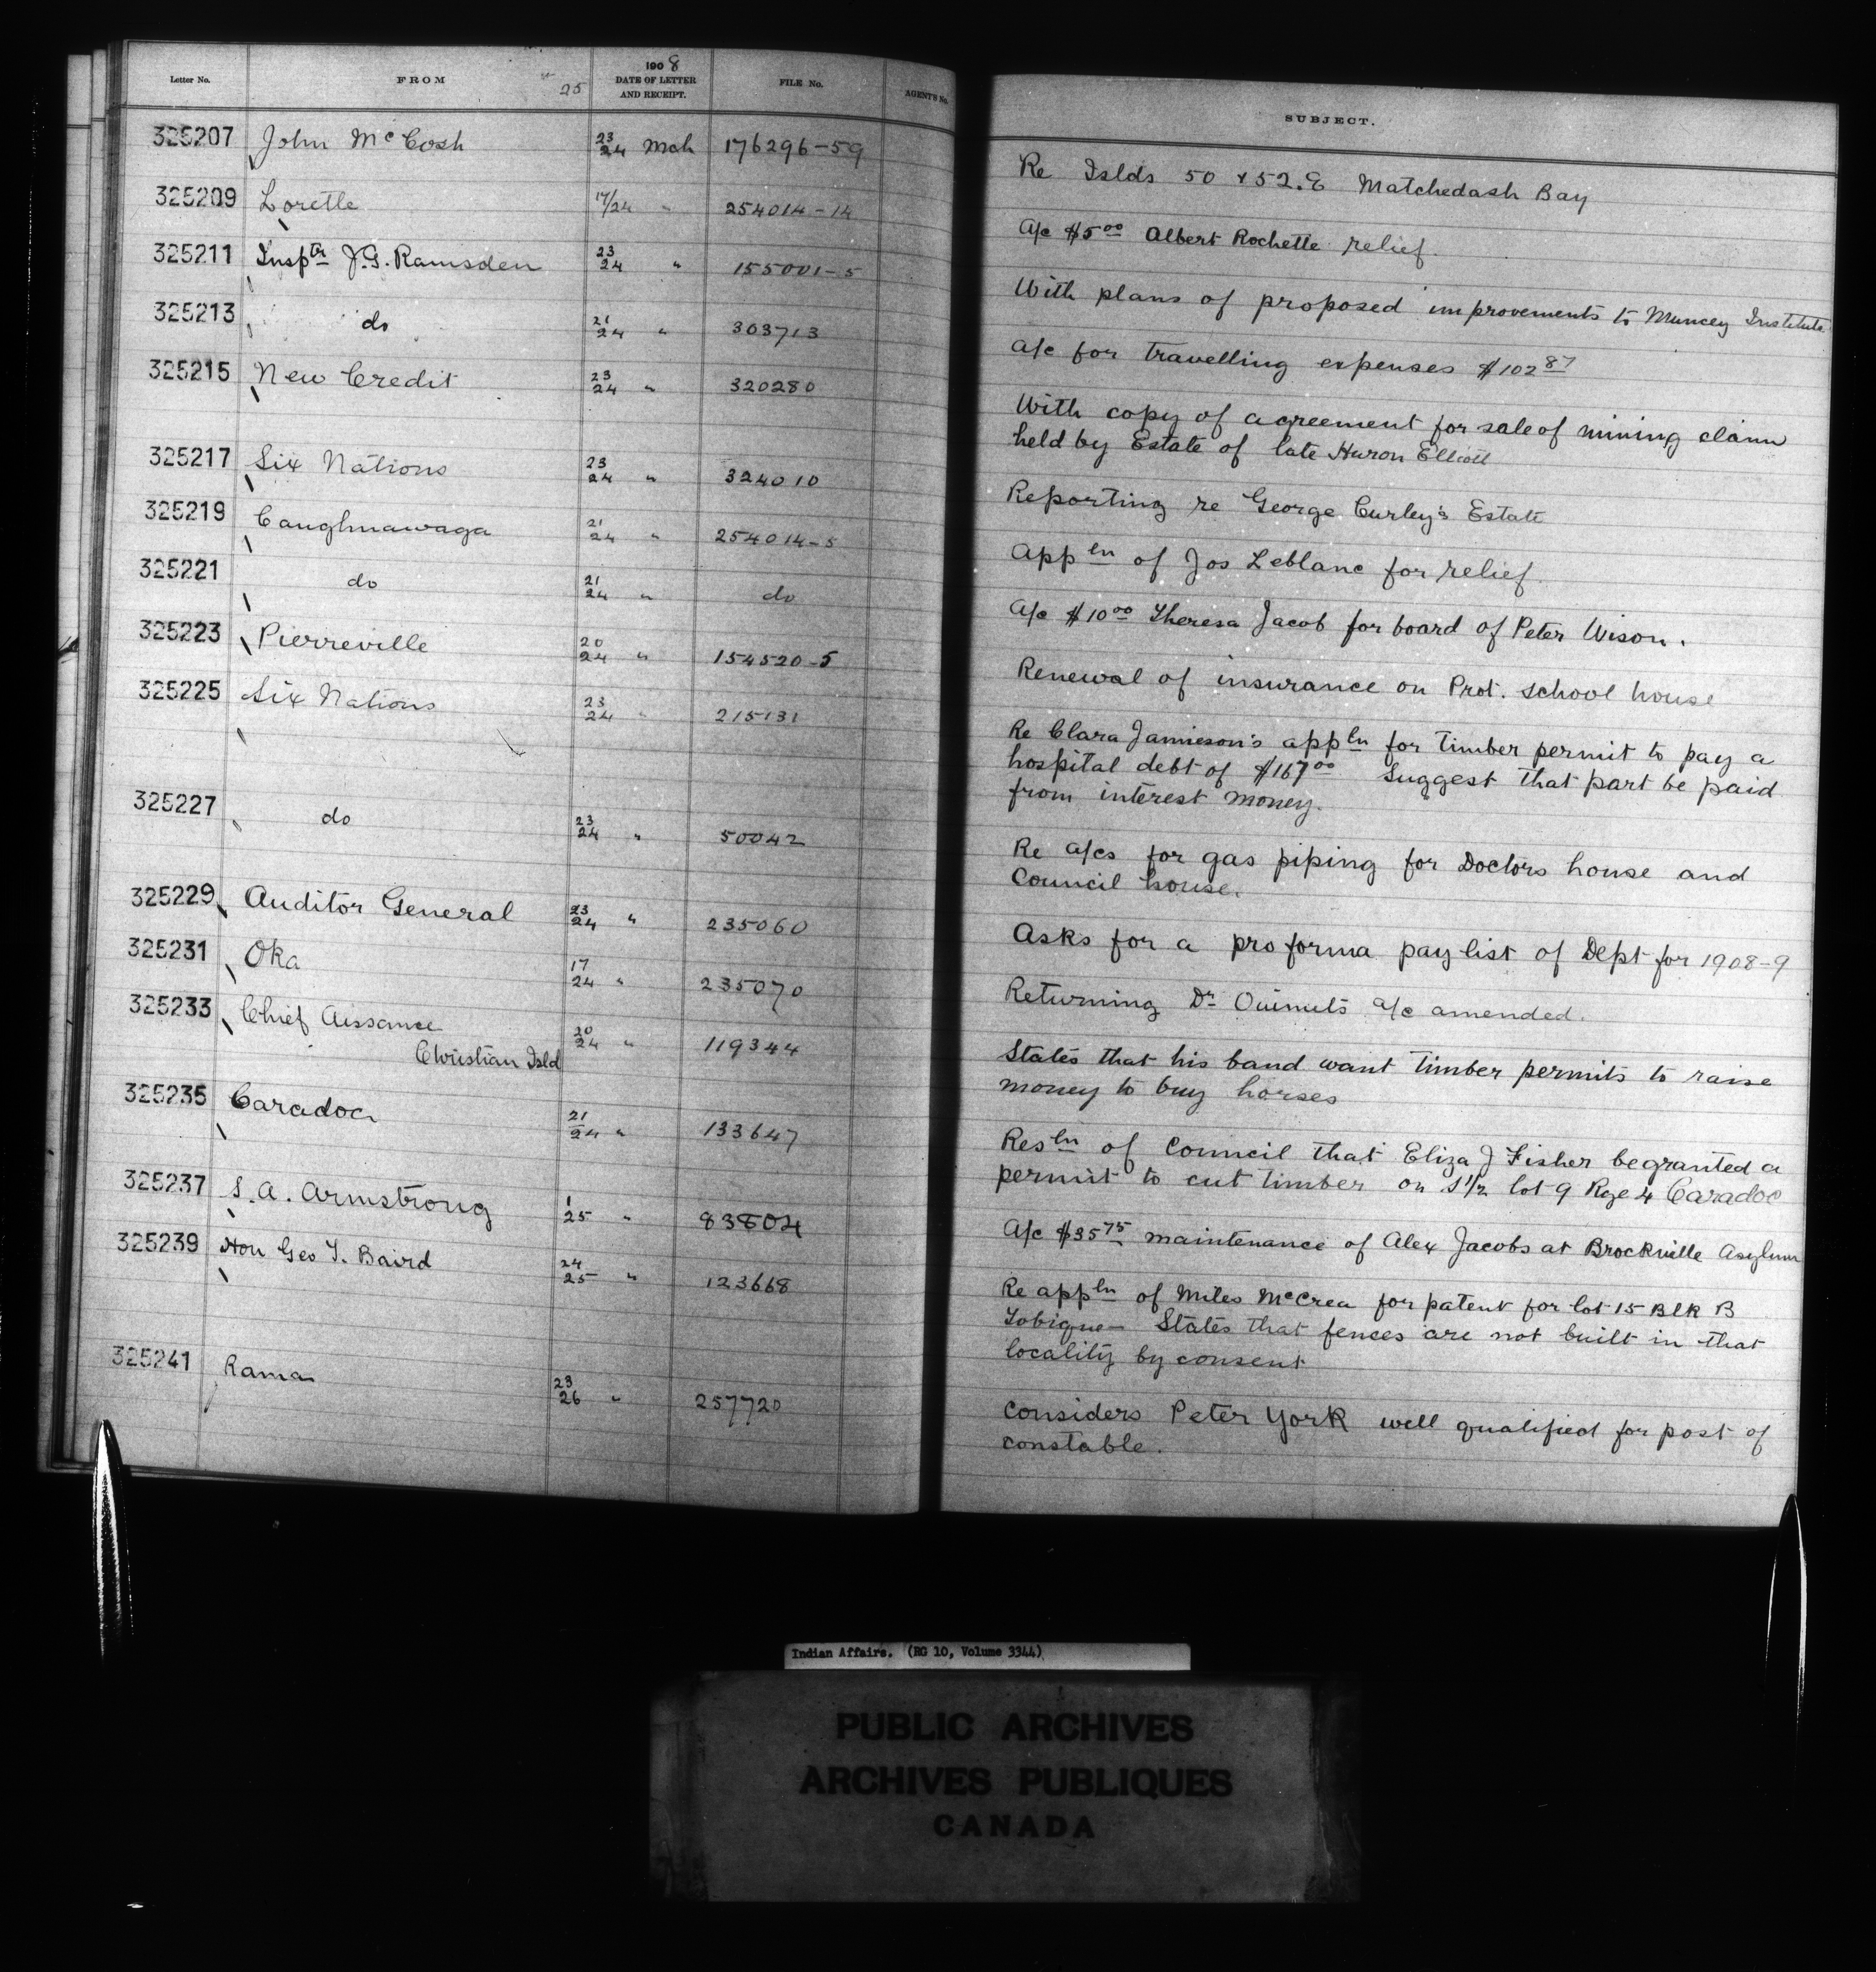 Letter No. FROM 25 1908 DATE OF LETTER AND RECEIPT. FILE No. AGENT'S No. SUBJECT.
325207 John McCosh 23/24 Mch 176296-59 Re Islds 50 & 52.E Matchedash Bay
325209 Lorette 17/24 " 254014-14 a/c $5.00 Albert Rochette relief.
325211 Insptr J.G. Ramsden 23/24 " 155001-5 With plans of proposed improvements to Muncey Institute
325213 do 21/24 " 303713 a/c for travelling expenses $102.87
325215 New Credit 23/24 " 320280 With copy of agreement for sale of mining claim
held by Estate of late Huron Elliott
325217 Six Nations 23/24 " 324010 Reporting re George Curley's Estate
325219 Caughnawaga 21/24 " 254014-5 Appln of Jos Leblanc for relief.
325221 do 21/24 " do A/c $10.00 Theresa Jacob for board of Peter Wison.
325223 Pierreville 20/24 " 154520-5 Renewal of insurance on Prot. school house
325225 Six Nations 23/24 " 215131 Re Clara Jamieson's appln for timber permit to pay a
hospital debt of $167.00 Suggest that part be paid
from interest money.
325227 do 23/24 " 50042 Re a/cs for gas piping for Doctors house and
Council house.
325229 Auditor General 23/24 " 235060 Asks for a pro forma pay list of Dept for 1908-9
325231 Oka 17/24 " 235070 Returning Dr Ouimets a/c amended.
325233 Chief Aissance 20/24 " 119344 States that his band want timber permits to raise
Christian Isld money to buy horses
325235 Caradoc 21/24 " 133647 Resln of Council that Eliza J Fisher be granted a
permit to cut timber on S 1/2 lot 9 Rge 4 Caradoc
325237 S.A. Armstrong 1/25 " 83804 A/c $35.75 maintenance of Alex Jacobs at Brockville Asylum
325239 Hon Geo T. Baird 24/25 " 123668 Re appln of Miles McCrea for patent for lot 15 Blk B
Tobique - States that fences are not built in that
locality by consent
325241 Rama 23/26 " 257720 Considers Peter York well qualified for post of
constable.
Indian Affairs. (RG 10, Volume 3344)
PUBLIC ARCHIVES
ARCHIVES PUBLIQUES
CANADA